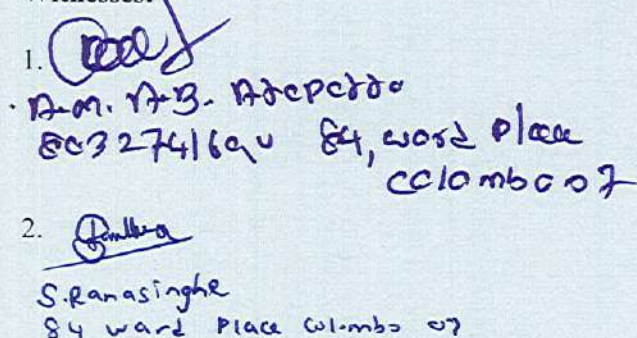 Witnesses:
1.
A.M. A.B.
803274169V 84, word Place
Colombo 07
2.
S.Ranasinghe
84 ward Place Colombo 07